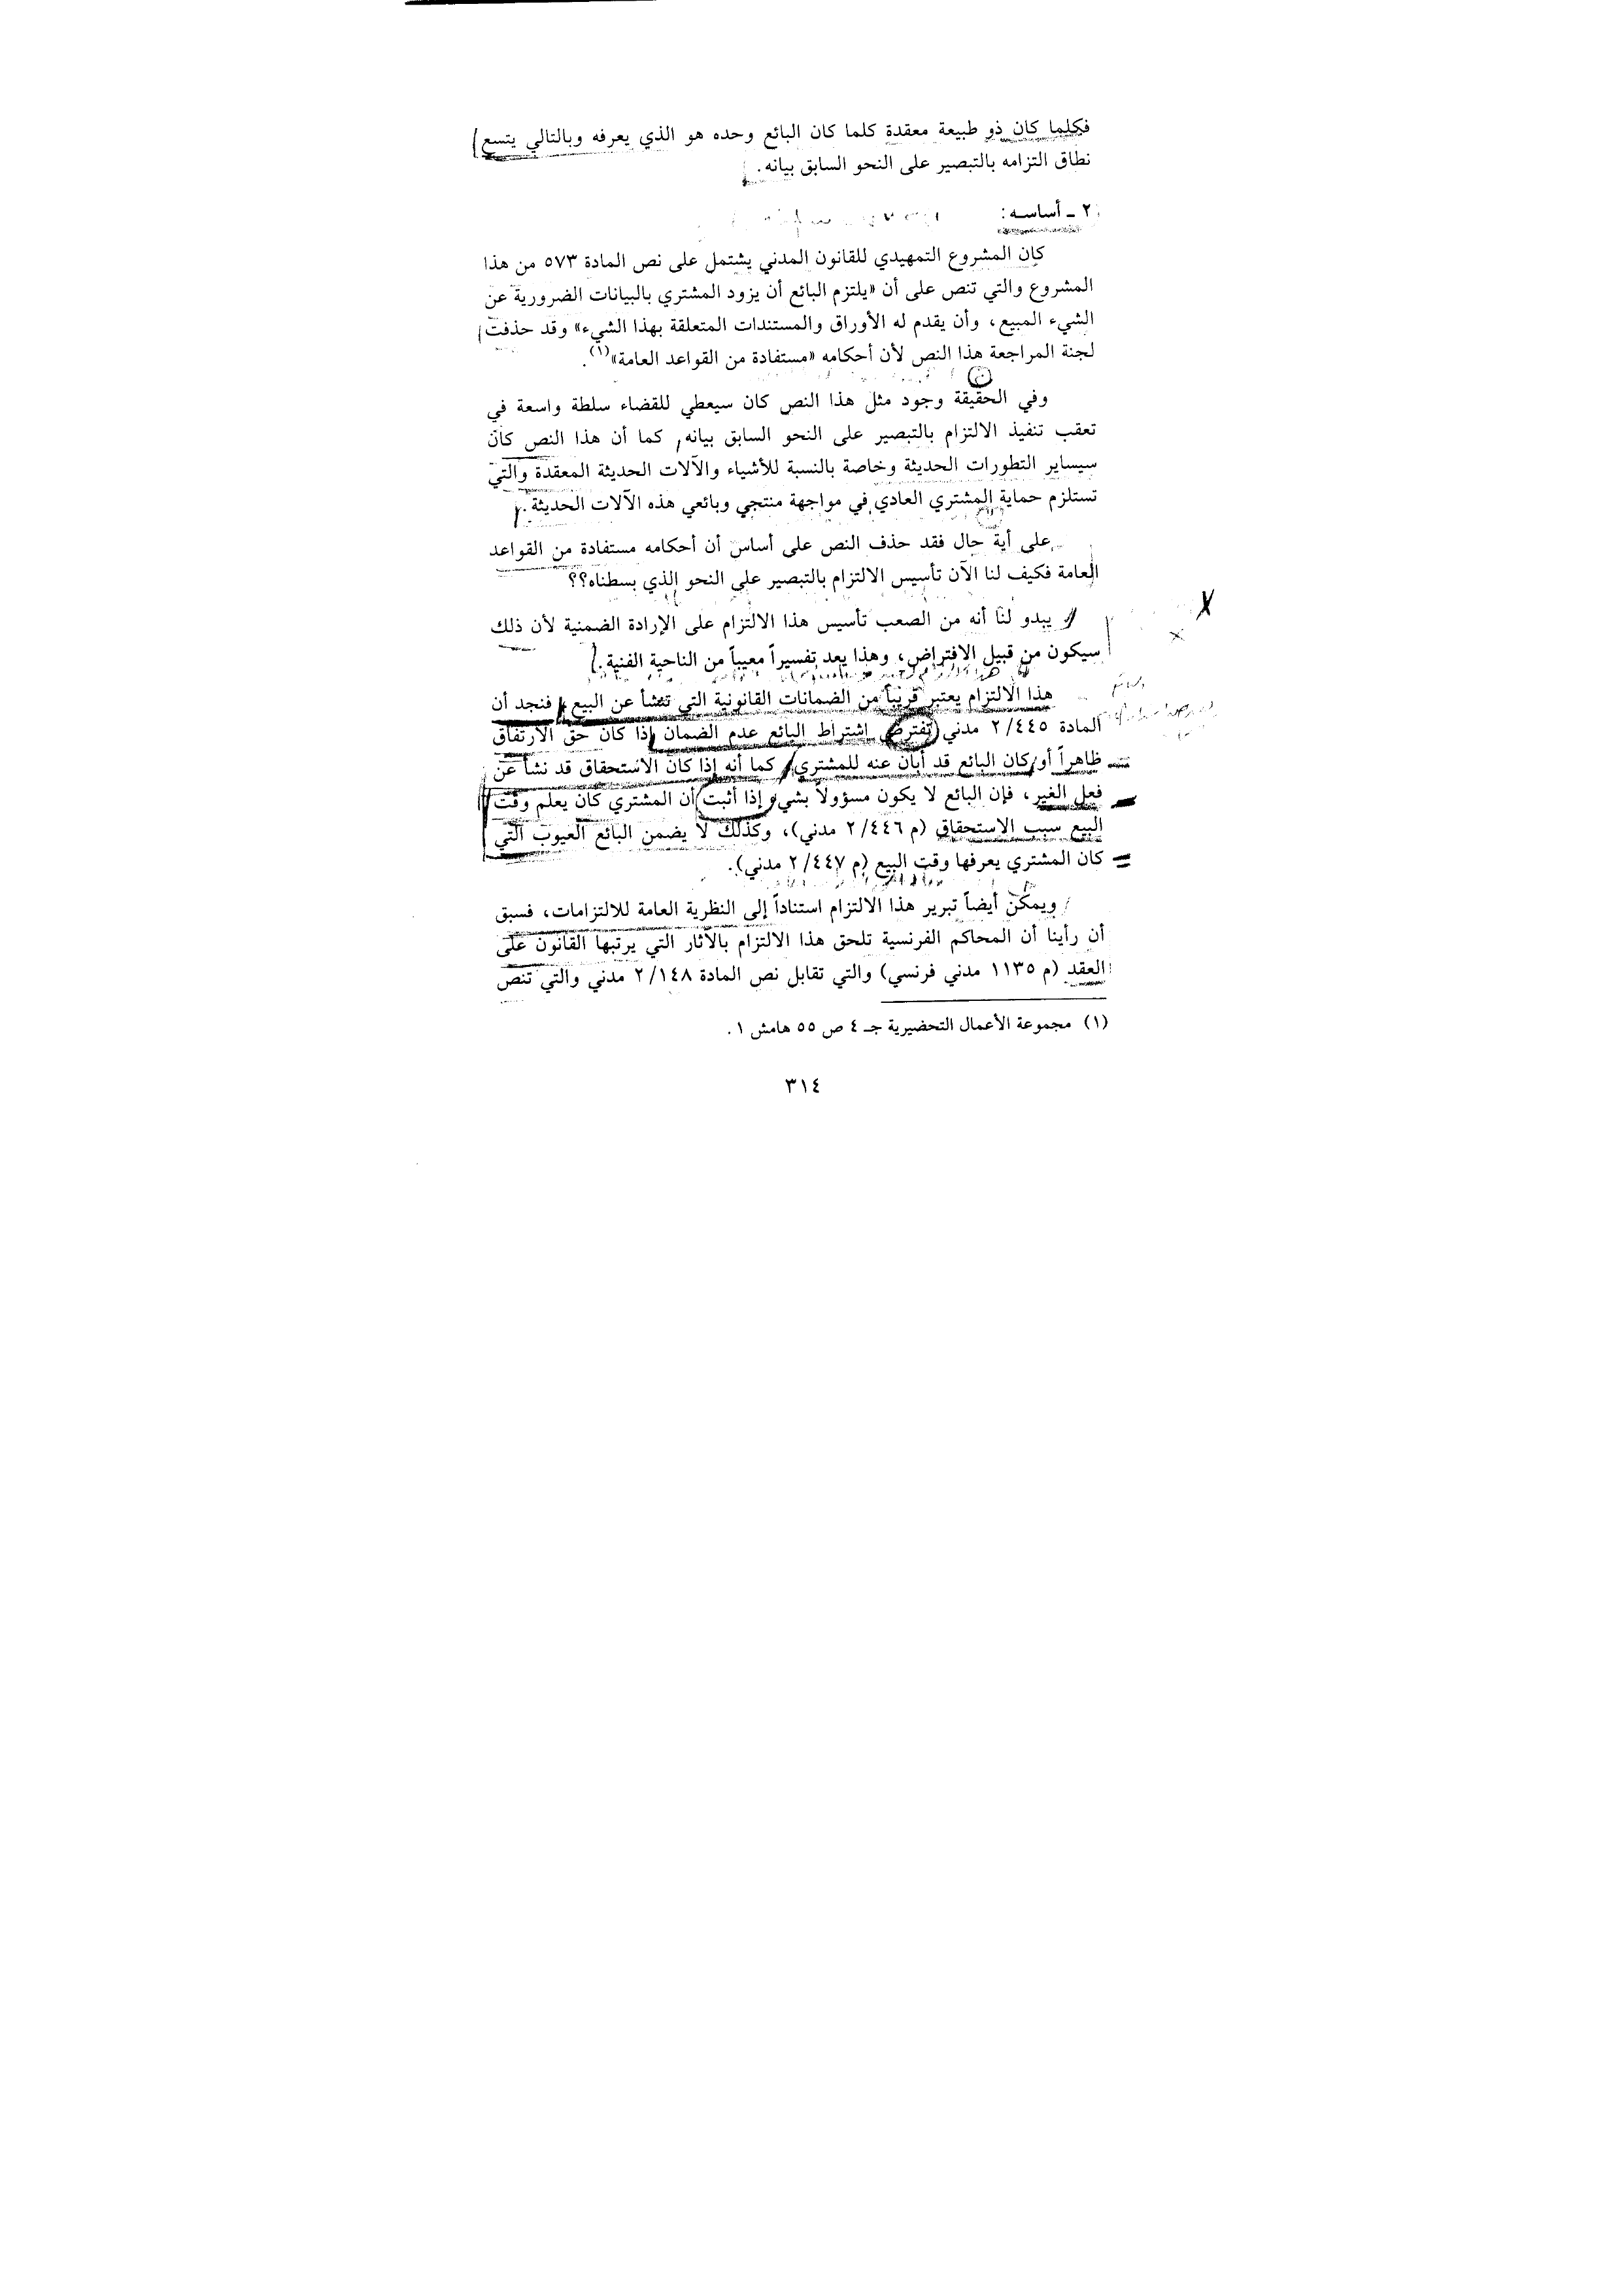 فكلما كان ذو طبيعة معقدة كلما كان البائع وحده هو الذي يعرفه وبالتالي يتسع
نطاق التزامه بالتبصير على النحو السابق بيانه.
٢ ـ أساسه:
كان المشروع التمهيدي للقانون المدني يشتمل على نص المادة ٥٧٣ من هذا
المشروع والتي تنص على أن «يلتزم البائع أن يزود المشتري بالبيانات الضرورية عن
الشيء المبيع، وأن يقدم له الأوراق والمستندات المتعلقة بهذا الشيء» وقد حذفت
لجنة المراجعة هذا النص لأن أحكامه «مستفادة من القواعد العامة»(١).
وفي الحقيقة وجود مثل هذا النص كان سيعطي للقضاء سلطة واسعة في
تعقب تنفيذ الالتزام بالتبصير على النحو السابق بيانه, كما أن هذا النص كان
سيساير التطورات الحديثة وخاصة بالنسبة للأشياء والآلات الحديثة المعقدة والتي
تستلزم حماية المشتري العادي في مواجهة منتجي وبائعي هذه الآلات الحديثة.
على أية حال فقد حذف النص على أساس أن أحكامه مستفادة من القواعد
العامة فكيف لنا الآن تأسيس الالتزام بالتبصير على النحو الذي بسطناه؟؟
يبدو لنا أنه من الصعب تأسيس هذا الالتزام على الإرادة الضمنية لأن ذلك
سيكون من قبيل الافتراض، وهذا يعد تفسيراً معيباً من الناحية الفنية.
هذا الالتزام يعتبر قريباً من الضمانات القانونية التي تنشأ عن البيع، فنجد أن
المادة ٢/٤٤٥ مدني تفترض اشتراط البائع عدم الضمان إذا كان حق الارتفاق
ظاهراً أو كان البائع قد أبان عنه للمشتري، كما أنه إذا كان الاستحقاق قد نشأ عن
فعل الغير، فإن البائع لا يكون مسؤولاً بشيء إذا أثبت أن المشتري كان يعلم وقت
البيع سبب الاستحقاق (م ٢/٤٤٦ مدني)، وكذلك لا يضمن البائع العيوب التي
كان المشتري يعرفها وقت البيع (م ٢/٤٤٧ مدني).
ويمكن أيضاً تبرير هذا الالتزام استناداً إلى النظرية العامة للالتزامات، فسبق
أن رأينا أن المحاكم الفرنسية تلحق هذا الالتزام بالآثار التي يرتبها القانون على
العقد (م ١١٣٥ مدني فرنسي) والتي تقابل نص المادة ٢/١٤٨ مدني والتي تنص
(١) مجموعة الأعمال التحضيرية جـ ٤ ص ٥٥ هامش ١.
٣١٤